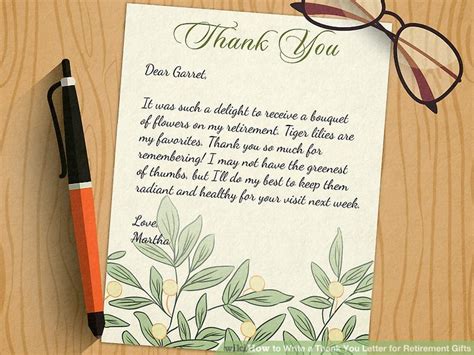 Thank You
Dear Garret,
It was such a delight to receive a bouquet
of flowers on my retirement. Tiger lilies are
my favorites. Thank you so much for
remembering! I may not have the greenest
of thumbs, but I'll do my best to keep them
radiant and healthy for your visit next week.
Love,
Martha
wikiHow to Write a Thank You Letter for Retirement Gifts